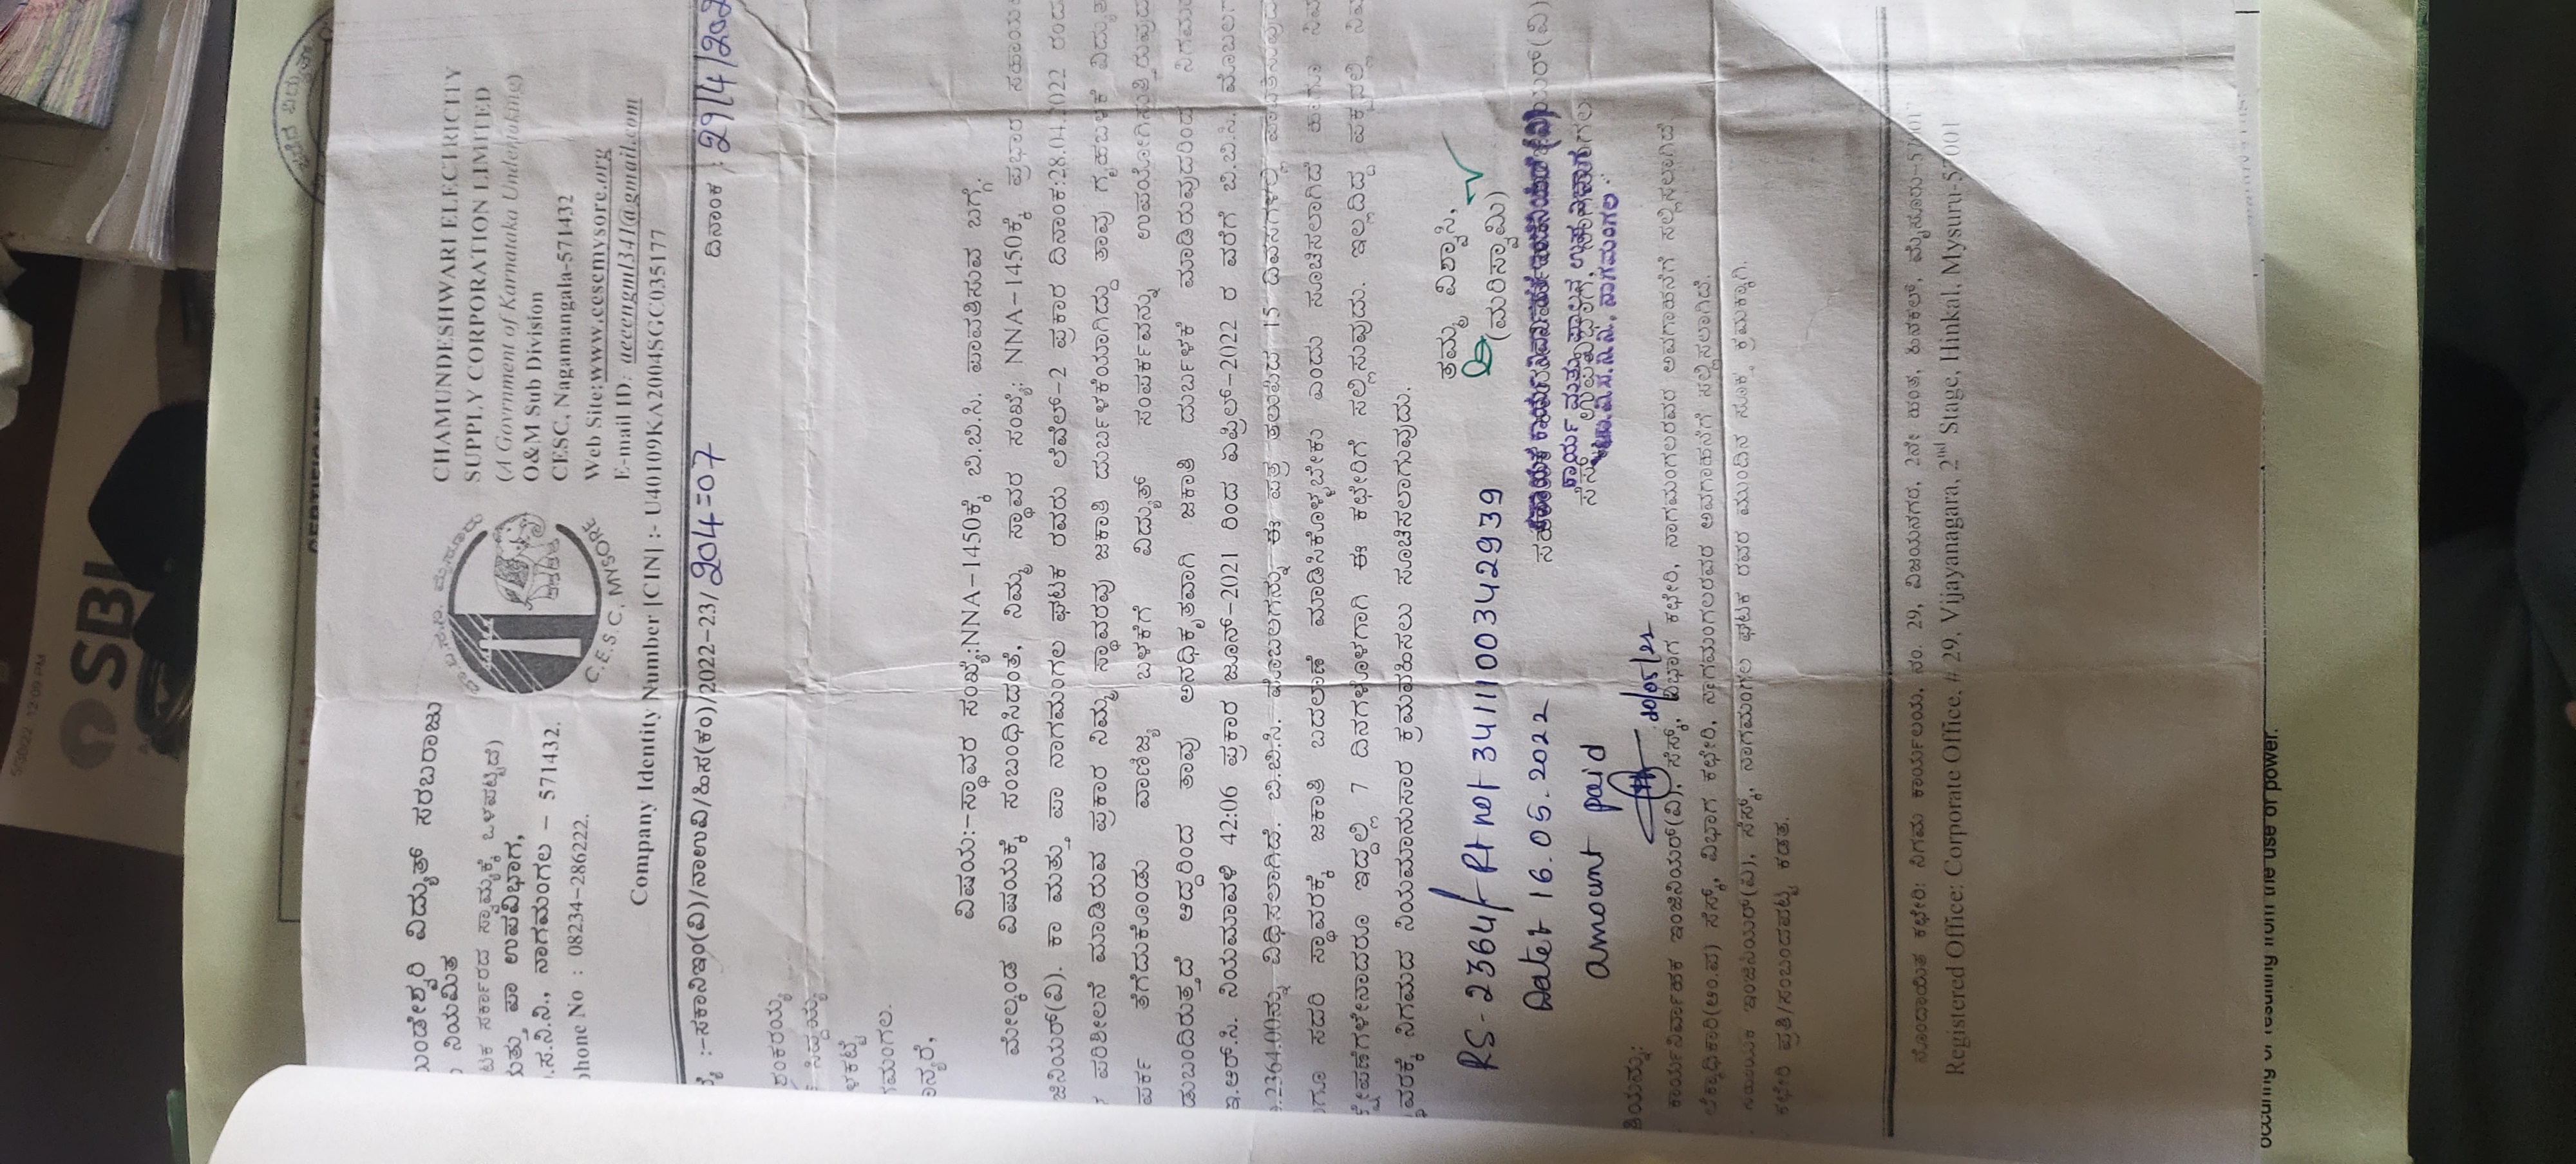 ಮುಂಡೇಶ್ವರಿ ವಿದ್ಯುತ್ ಸರಬರಾಜು
ನಿಯಮಿತ
ಟಕ ಸರ್ಕಾರದ ಸ್ವಾಮ್ಯಕ್ಕೆ ಒಳಪಟ್ಟಿದೆ)
ಮತ್ತು ಪಾ ಉಪವಿಭಾಗ,
.ಸ.ನಿ.ನಿ., ನಾಗಮಂಗಲ – 571432.
hone No : 08234-286222.
C.E.S.C, MYSORE
CHAMUNDESHWARI ELECTRICITY
SUPPLY CORPORATION LIMITED
(A Government of Karnataka Undertaking)
O&M Sub Division
CESC, Nagamangala-571432
Web Site:www.cescmysore.org
E-mail ID: aeeengml341@gmail.com
Company Identity Number [CIN] :- U40109KA2004SGC035177
:-ಸಕಾನಿಇಂ(ವಿ)/ನಾಉವಿ/ಹಿಸ(ಕಂ)/2022-23/204=07 ದಿನಾಂಕ : 29/4/202
ಶಂಕರಯ್ಯ
ಸಿದ್ದಯ್ಯ
ಳಕಟ್ಟೆ
ಗಮಂಗಲ.
ಾನ್ಯರೆ,
ವಿಷಯ:-ಸ್ಥಾವರ ಸಂಖ್ಯೆ:NNA-1450ಕ್ಕೆ ಬಿ.ಬಿ.ಸಿ. ಪಾವತಿಸುವ ಬಗ್ಗೆ.
ಮೇಲ್ಕಂಡ ವಿಷಯಕ್ಕೆ ಸಂಬಂಧಿಸಿದಂತೆ, ನಿಮ್ಮ ಸ್ಥಾವರ ಸಂಖ್ಯೆ: NNA-1450ಕ್ಕೆ ಪ್ರಭಾರ ಸಹಾಯಕ
ಜಿನಿಯರ್(ವಿ). ಕಾ ಮತ್ತು ಪಾ ನಾಗಮಂಗಲ ಘಟಕ ರವರು ಲೆವೆಲ್-2 ಪ್ರಕಾರ ದಿನಾಂಕ:28.04.2022 ರಂದ
ಪರಿಶೀಲನೆ ಮಾಡಿರುವ ಪ್ರಕಾರ ನಿಮ್ಮ ಸ್ಥಾವರವು ಜಕಾತಿ ದುರ್ಬಳಕೆಯಾಗಿದ್ದು ತಾವು ಗೃಹಬಳಕೆ ವಿದ್ಯುತ
ಪರ್ಕ ತೆಗೆದುಕೊಂಡು ವಾಣಿಜ್ಯ ಬಳಕೆಗೆ ವಿದ್ಯುತ್ ಸಂಪರ್ಕವನ್ನು ಉಪಯೋಗಿಸುತ್ತಿರುವುದ
ಡುಬಂದಿರುತ್ತದೆ ಆದ್ದರಿಂದ ತಾವು ಅನಧಿಕೃತವಾಗಿ ಜಕಾತಿ ದುರ್ಬಳಕೆ ಮಾಡಿರುವುದರಿಂದ ನಿಗಮದ
ಇ.ಆರ್.ಸಿ. ನಿಯಮಾವಳಿ 42:06 ಪ್ರಕಾರ ಜೂನ್-2021 ರಿಂದ ಏಪ್ರಿಲ್-2022 ರ ವರೆಗೆ ಬಿ.ಬಿ.ಸಿ. ಮೊಬಲಗ
.2364.00ನ್ನು ವಿಧಿಸಲಾಗಿದೆ. ಬಿ.ಬಿ.ಸಿ. ಮೊಬಲಗನ್ನು ಈ ಪತ್ರ ತಲುಪಿದ 15 ದಿವಸಗಳಲ್ಲಿ
ಾಗೂ ಸದರಿ ಸ್ಥಾವರಕ್ಕೆ ಜಕಾತಿ ಬದಲಾವಣೆ ಮಾಡಿಸಿಕೊಳ್ಳಬೇಕು ಎಂದು ಸೂಚಿಸಲಾಗಿದೆ ಹಾಗೂ ನಿಮ
ಕ್ಷೇಪಣೆಗಳೇನಾದರೂ ಇದ್ದಲ್ಲಿ 7 ದಿನಗಳೊಳಗಾಗಿ ಈ ಕಛೇರಿಗೆ ಸಲ್ಲಿಸುವುದು. ಇಲ್ಲದಿದ್ದ ಪಕ್ಷದಲ್ಲಿ ನಿಮ
ಥಾವರಕ್ಕೆ ನಿಗಮದ ನಿಯಮಾನುಸಾರ ಕ್ರಮವಹಿಸಲು ಸೂಚಿಸಲಾಗುವುದು.
ತಮ್ಮ ವಿಶ್ವಾಸಿ,
(ಮರಿಸ್ವಾಮಿ)
RS-2364/- Rt no: 341110034 2939
Date: 16.05.2022
amount paid
20/05/22
ಕಾರ್ಯ ಮತ್ತು ಪಾಲನೆ ಉಪ ವಿಭಾಗ
ಚಾ.ವಿ.ಸ.ನಿ.ನಿ. ನಾಗಮಂಗಲ.
ತಿಯನ್ನು:
ಕಾರ್ಯನಿರ್ವಾಹಕ ಇಂಜಿನಿಯರ್(ವಿ), ಸೆಸ್ಕ್, ವಿಭಾಗ ಕಛೇರಿ, ನಾಗಮಂಗಲರವರ ಅವಗಾಹನೆಗೆ ಸಲ್ಲಿಸಲಾಗಿದೆ.
ಲೆಕ್ಕಾಧಿಕಾರಿ(ಆಂ.ಪ) ಸೆಸ್ಕ್, ವಿಭಾಗ ಕಛೇರಿ, ನಾಗಮಂಗಲರವರ ಅವಗಾಹನೆಗೆ ಸಲ್ಲಿಸಲಾಗಿದೆ.
ಸಹಾಯಕ ಇಂಜಿನಿಯರ್(ವಿ), ಸೆಸ್ಕ್, ನಾಗಮಂಗಲ ಘಟಕ ರವರ ಮುಂದಿನ ಸೂಕ್ತ ಕ್ರಮಕ್ಕಾಗಿ.
ಕಛೇರಿ ಪ್ರತಿ/ಸಂಬಂದಪಟ್ಟ ಕಡತ.
ನೊಂದಾಯಿತ ಕಛೇರಿ: ನಿಗಮ ಕಾರ್ಯಾಲಯ, ನಂ. 29, ವಿಜಯನಗರ, 2ನೇ ಹಂತ, ಹಿನಕಲ್, ಮೈಸೂರು-57001
Registered Office: Corporate Office, # 29, Vijayanagara, 2nd Stage, Hinkal, Mysuru-57001
SBI
5/30/22 12:09 PM
resulting from the use of power.